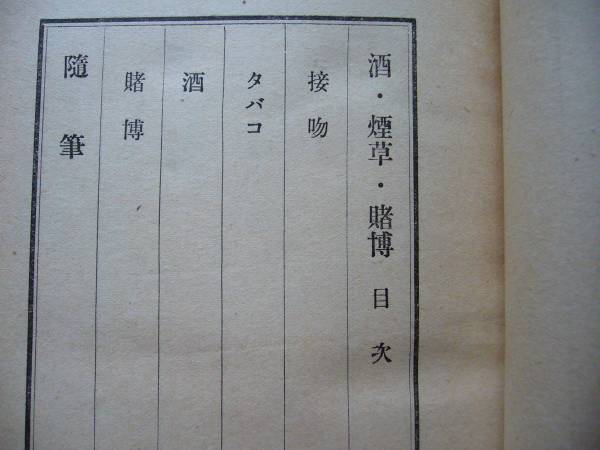 酒・煙草・賭博 目次
接吻
タバコ
酒
賭博
隨筆